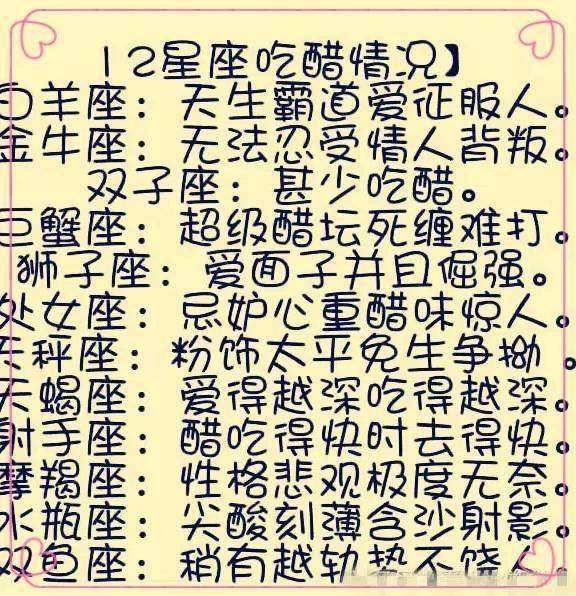 12星座吃醋情况】
白羊座：天生霸道爱征服人。
金牛座：无法忍受情人背叛。
双子座：甚少吃醋。
巨蟹座：超级醋坛死缠难打。
狮子座：爱面子并且倔强。
处女座：忌妒心重醋味惊人。
天秤座：粉饰太平免生争拗。
天蝎座：爱得越深吃得越深。
射手座：醋吃得快时去得快。
摩羯座：性格悲观极度无奈。
水瓶座：尖酸刻薄含沙射影。
双鱼座：稍有越轨势不饶人。